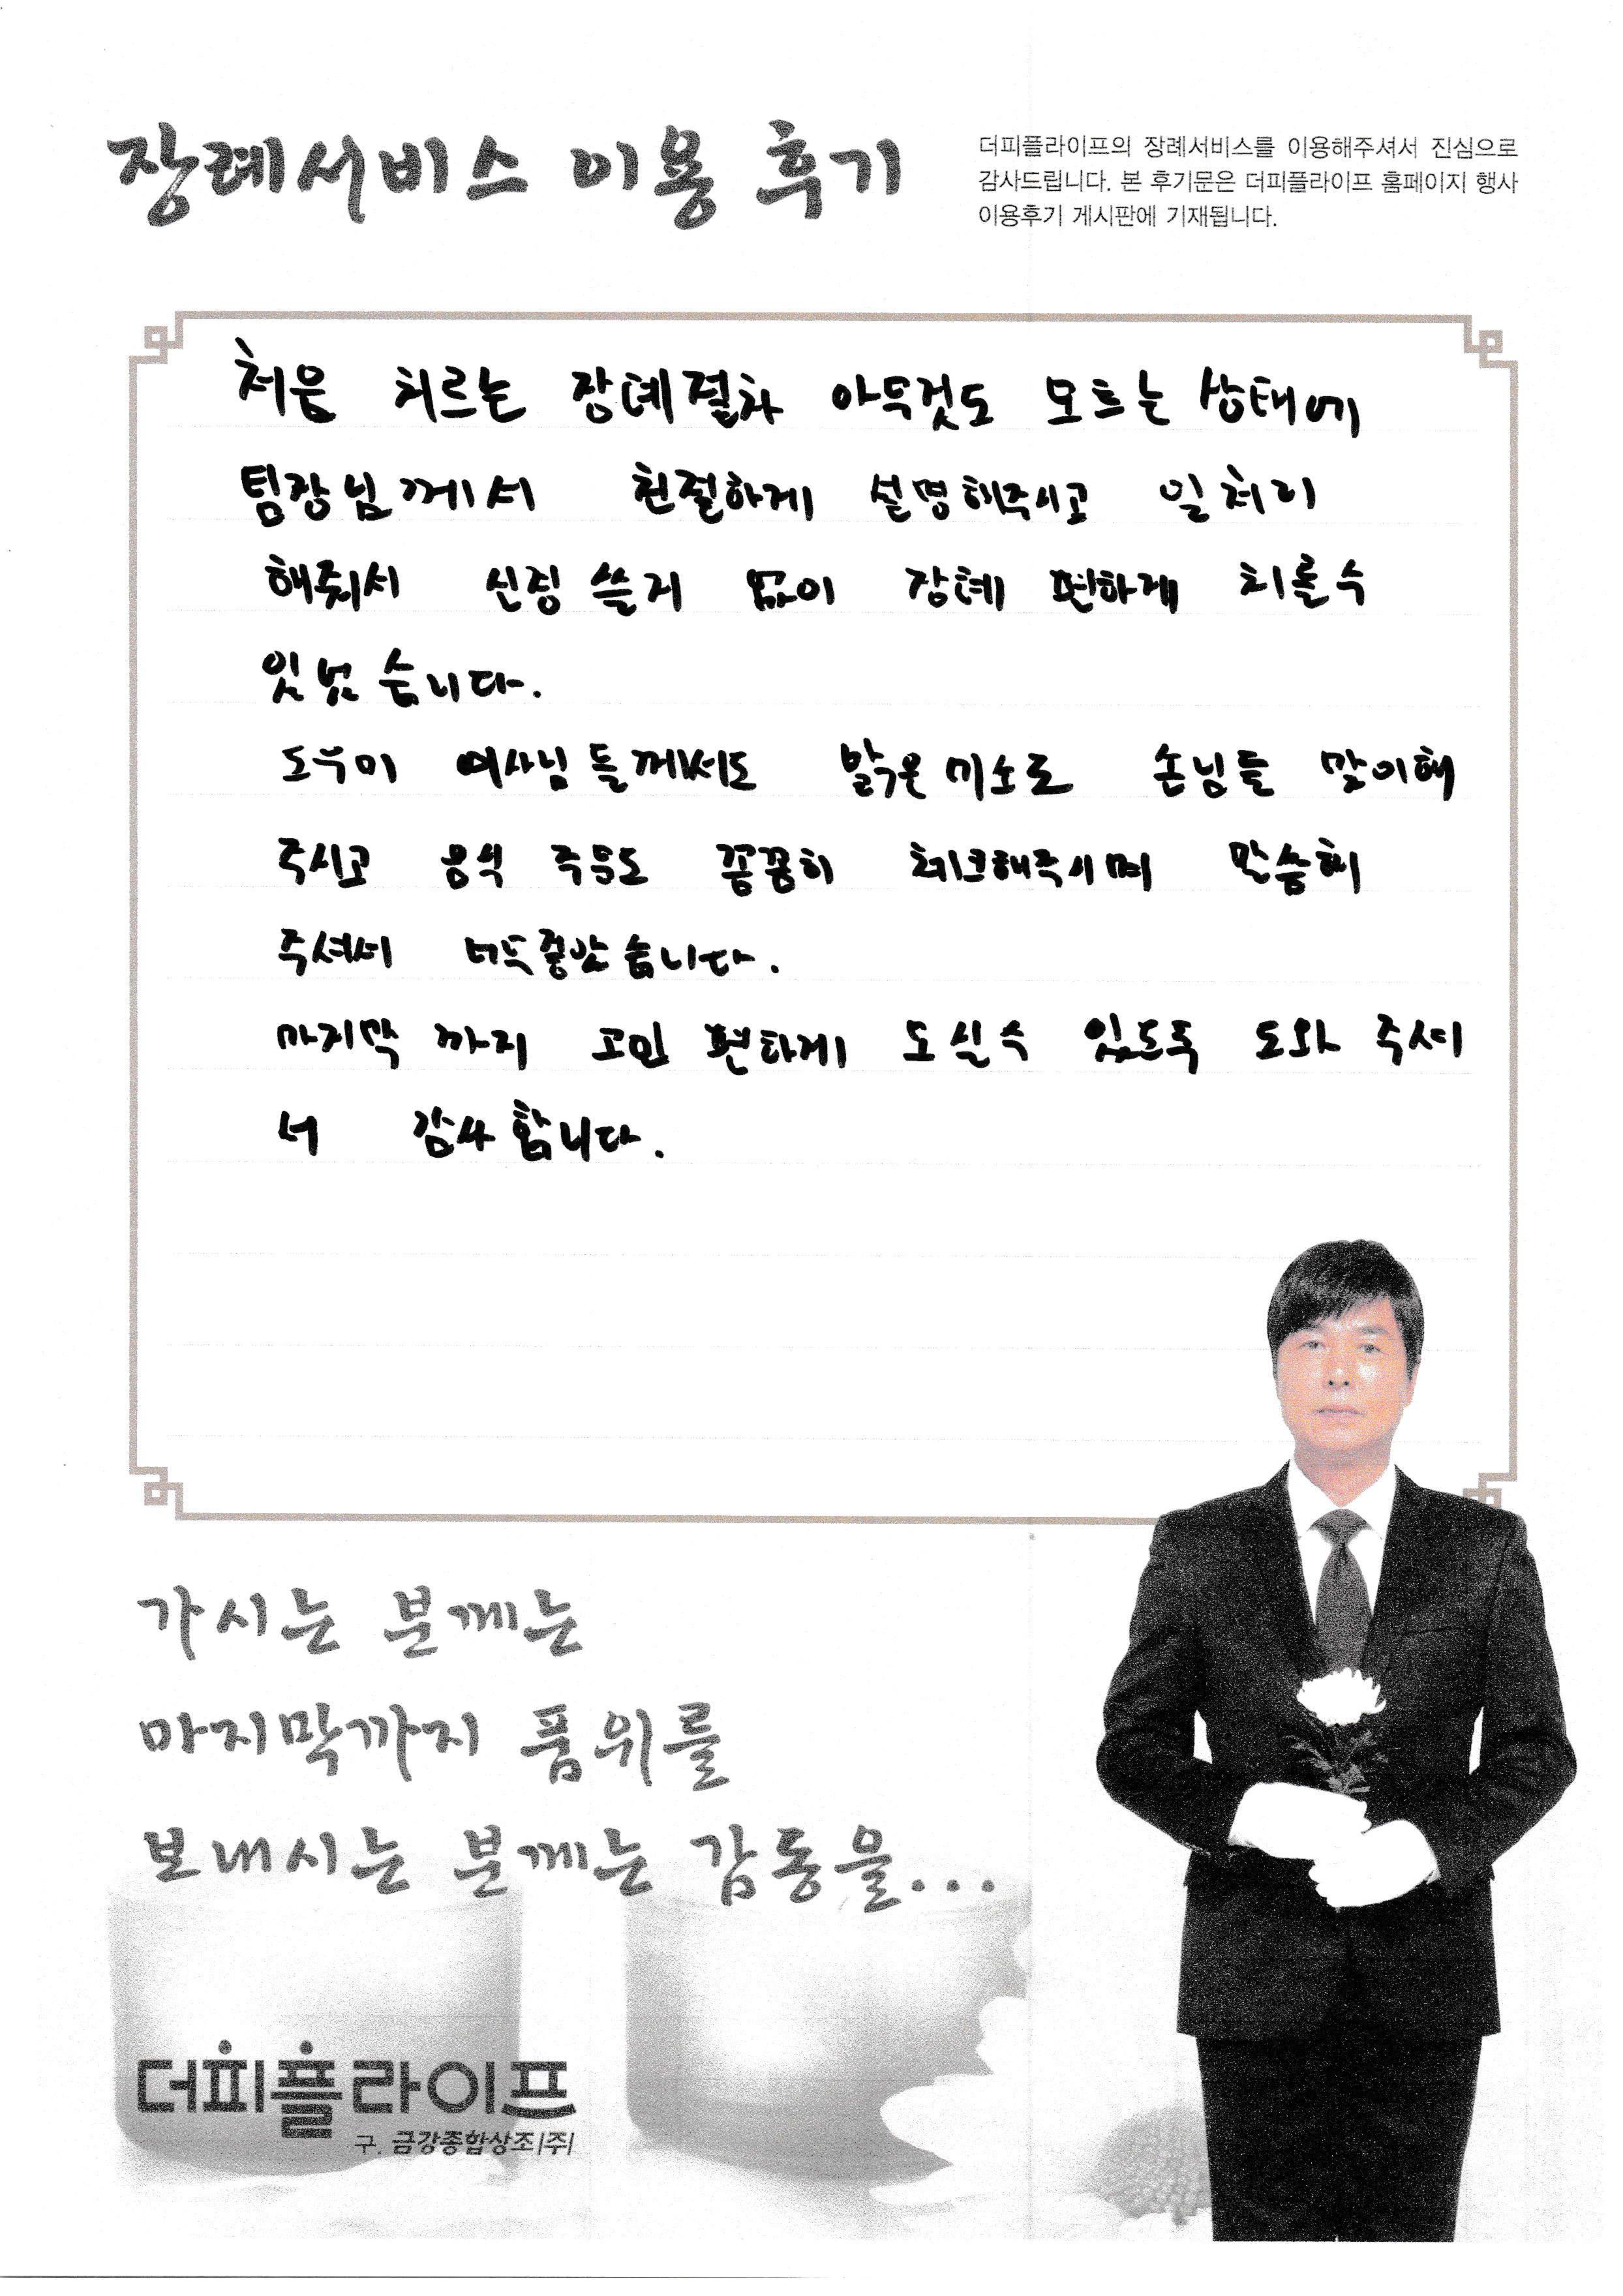 장례서비스 이용 후기
더피플라이프의 장례서비스를 이용해주셔서 진심으로
감사드립니다. 본 후기문은 더피플라이프 홈페이지 행사
이용후기 게시판에 기재됩니다.
처음 치르는 장례절차 아무것도 모르는 상태에
팀장님께서 친절하게 설명해주시고 일처리
해줘서 신경 쓸거 없이 장례 편하게 치를수
있었습니다.
도우미 여사님들께서도 밝은 미소로 손님들 맞이해
주시고 음식 주문도 꼼꼼히 체크해주시며 말씀해
주셔서 너무좋았습니다.
마지막 까지 고인 편하게 모실수 있도록 도와 주셔
서 감사합니다.
가시는 분께는
마지막까지 품위를
보내시는 분께는 감동을...
더피플라이프
구. 금강종합상조(주)